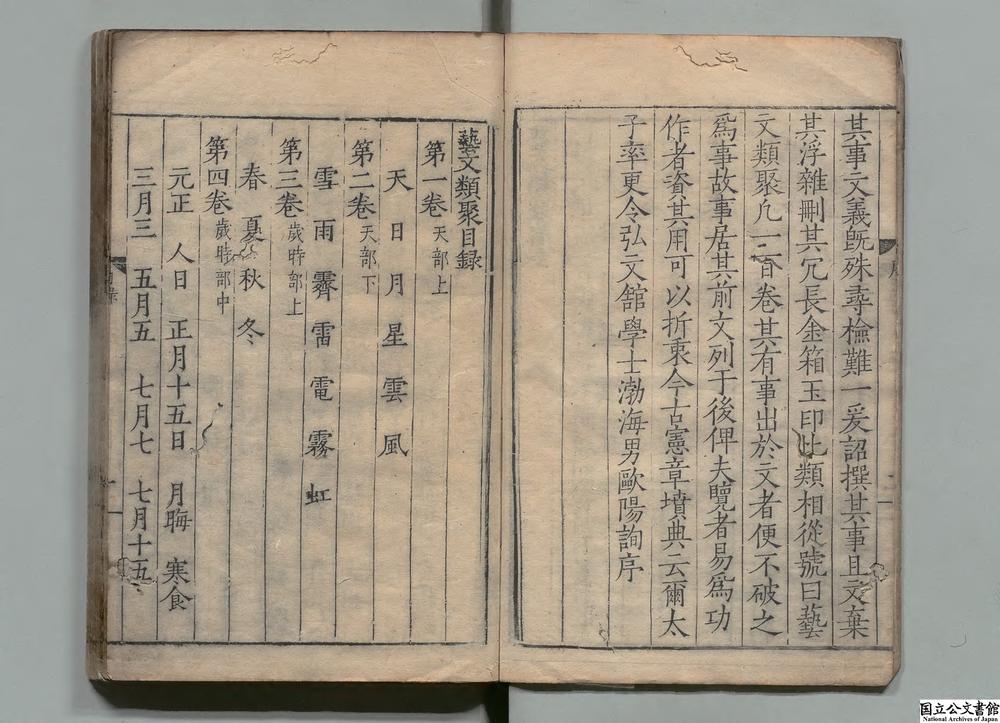 其事文義旣殊尋檢難一爰詔撰其事且文棄
其浮雜刪其冗長金箱玉印比類相從號曰藝
文類聚凡一百卷其有事出於文者便不破之
爲事故事居其前文列于後俾夫覽者易爲功
作者資其用可以折衷今古憲章墳典云爾太
子率更令弘文館學士渤海男歐陽詢序
序
藝文類聚目録
第一卷 天部上
天 日 月 星 雲 風
第二卷 天部下
雪 雨 霽 雷 電 霧 虹
第三卷 歲時部上
春 夏 秋 冬
第四卷 歲時部中
元正 人日 正月十五日 月晦 寒食
三月三 五月五 七月七 七月十五
目録
一
国立公文書館
National Archives of Japan